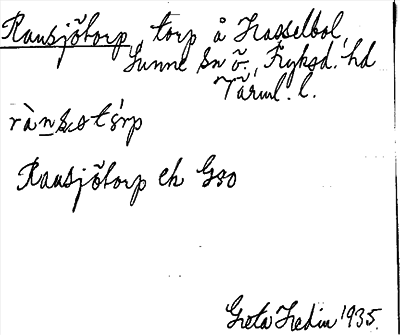 Ransjötorp, torp å Hasselbol,
Sunne sn ö. Fryksd. hd
Värml. l.
Ransjötorp ek G50
Greta Hedin 1935.